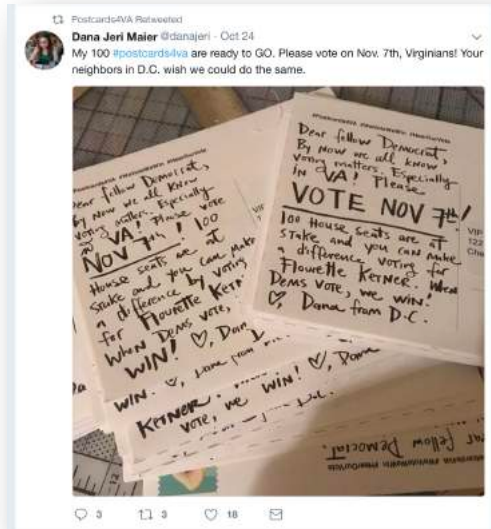 Postcards4VA Retweeted
Dana Jeri Maier @danajeri · Oct 24
My 100 #postcards4va are ready to GO. Please vote on Nov. 7th, Virginians! Your
neighbors in D.C. wish we could do the same.
Dear fellow Democrat,
By now we all know
voting matters. Especially
in VA! Please vote
NOV 7th! 100
House seats are at
stake and you can make
a difference by voting
for Flourette Ket
When Dems vote,
WIN! ♡, Dan
Dear fellow Democrat,
By now we all know
voting matters. Especially
in VA! Please
VOTE NOV 7th!
100 House seats are at
stake and you can make
a difference voting for
Flourette Ketner. When
Dems vote, we win!
♡, Dana from D.C.
VIP
122
Cha
WIN. ♡, Dana from
Ketner.
vote, we WIN! ♡, Dana
ar fellow Democrat.
3
3
18